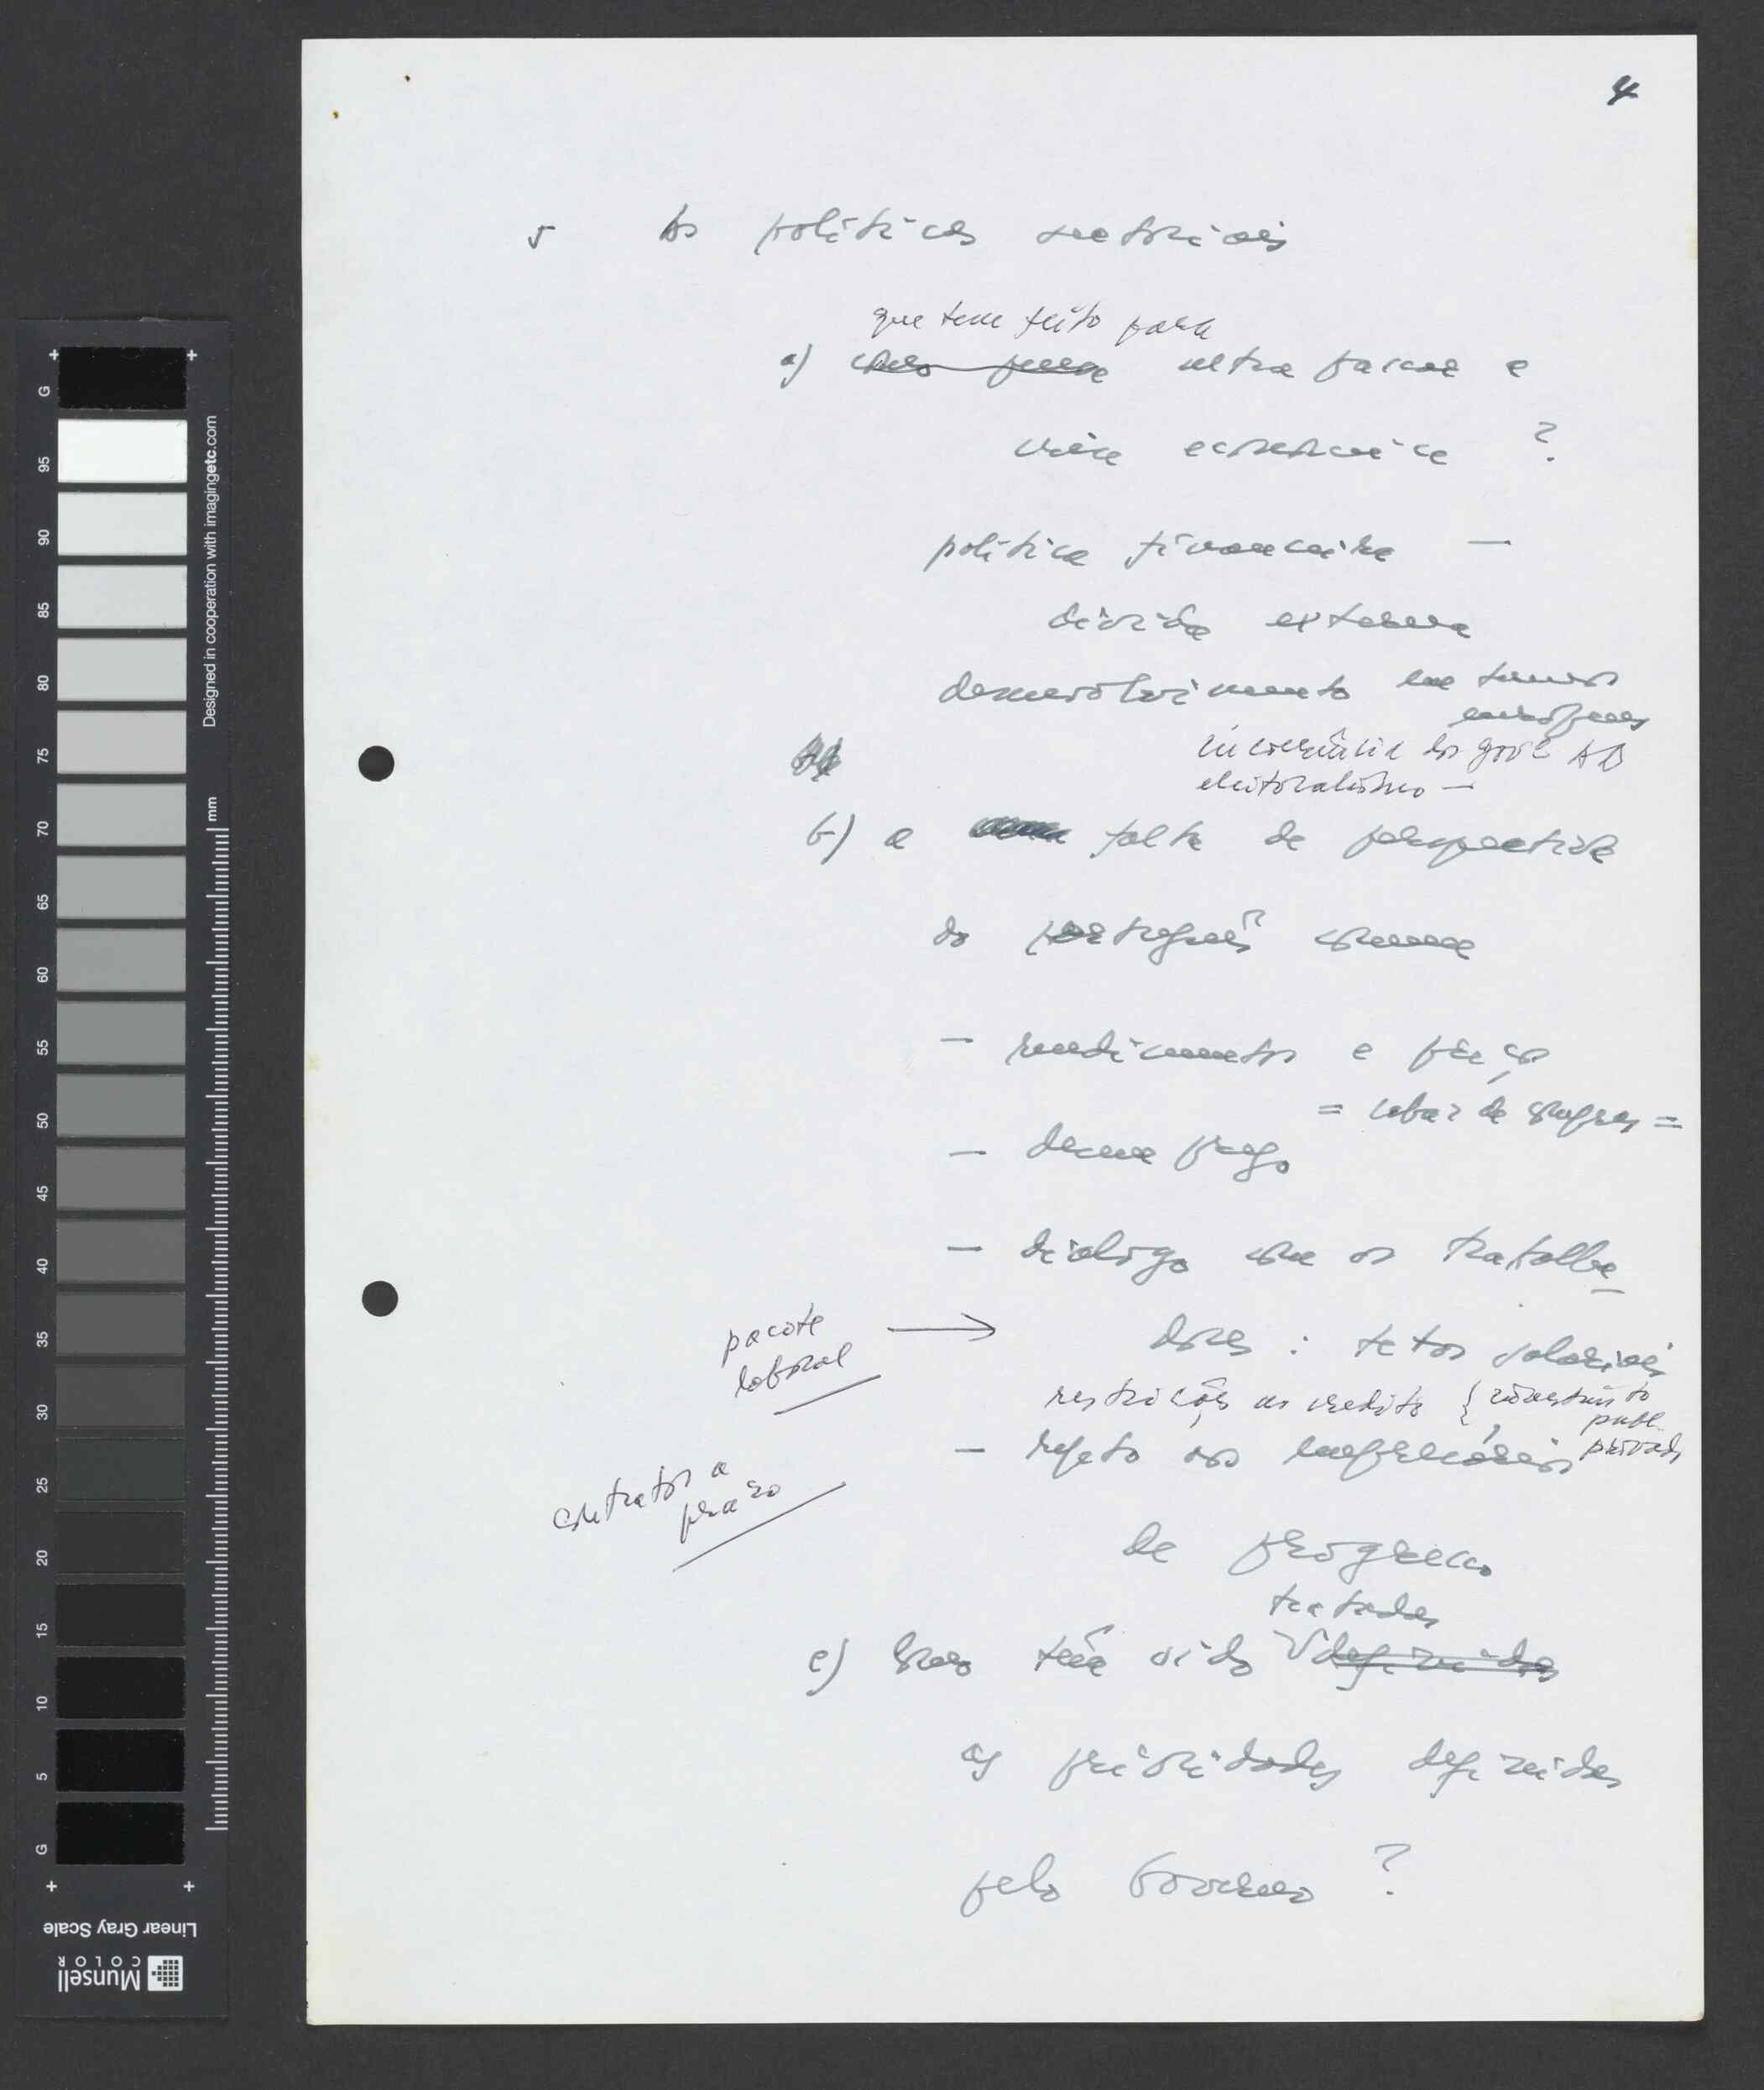 4
5 As políticas sectoriais
que tem feito para
a) como pensa ultrapassar a
crise económica ?
política financeira —
dívida externa
desenvolvimento em termos
europeus
incoerência dos gov. AD
eleitoralismo —
b) a falta de perspectiva
do português comum
— rendimentos e preços
= cabaz de compras =
— desemprego
— diálogo com os trabalha-
pacote
laboral
dores : tetos salariais
restrições ao crédito { investimento
publ.
privado
— rejeito aos empresários
contratos a
prazo
de progresso
tratadas
c) como têm sido definidas
as prioridades definidas
pelo Governo ?
G 95 90 85 80 75 70 65 60 55 50 45 40 35 30 25 20 15 10 5 G
Designed in cooperation with imagingetc.com
mm
Linear Gray Scale
Munsell
COLOR